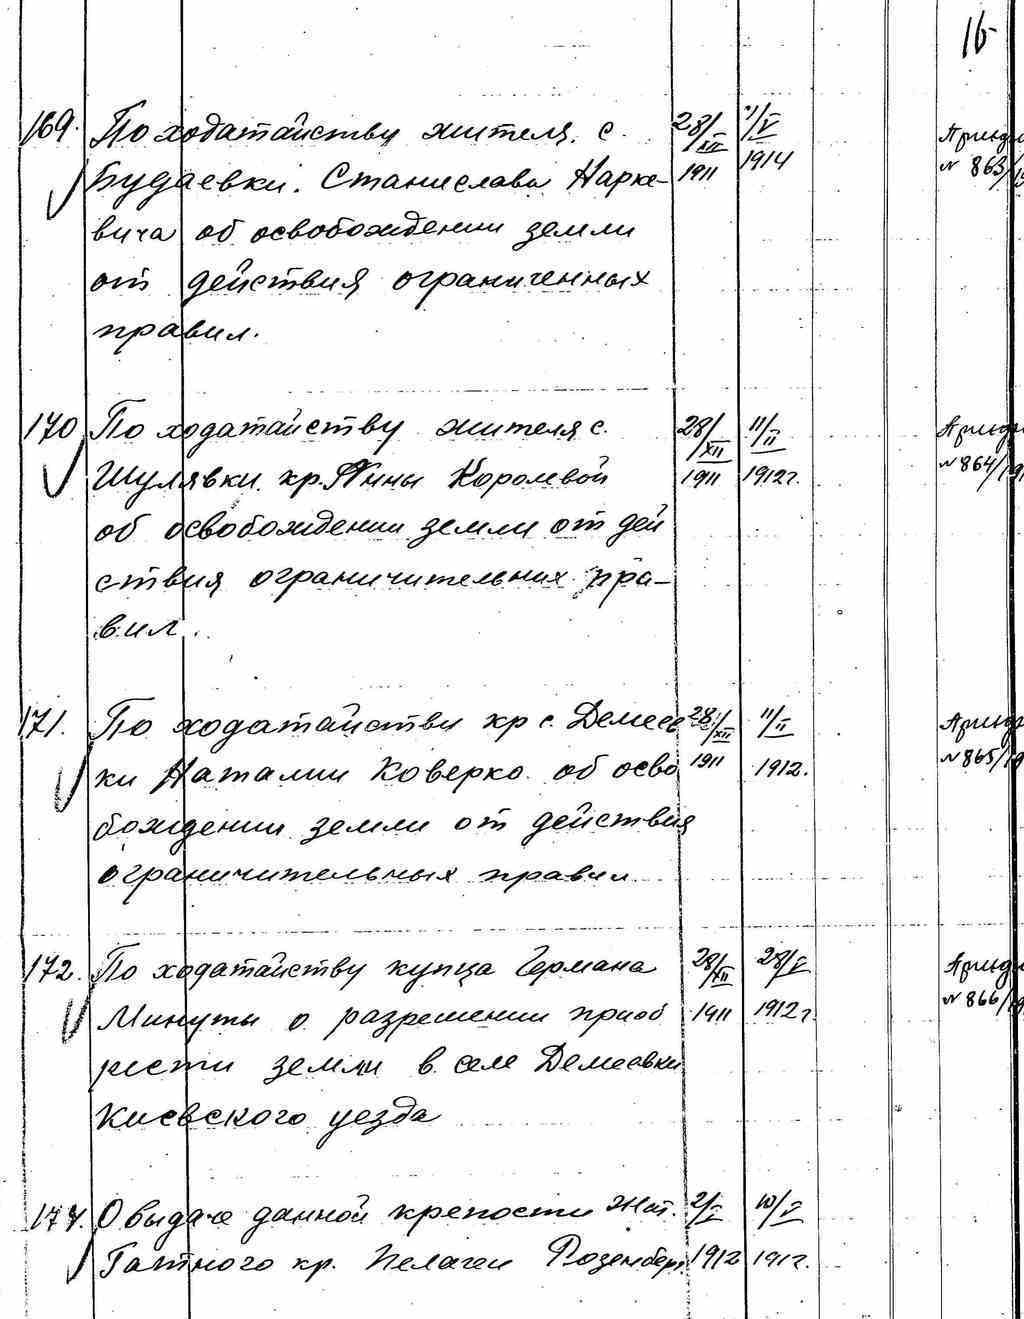 16
169. По ходатайству жителя с. 28/XII 11/V
Будаевки. Станислава Нарке- 1911 1914
№ 863/
вича об освобождении земли
от действия ограниченных
правил.
170 По ходатайству жителя с. 28/XII 11/II
Шулявки кр. Анны Королевой 1911 1912г.
№ 864/19
об освобождении земли от дей
ствия ограничительних пра-
вил.
171. По ходатайстви кр с. Демеев 28/XII 11/II
ки Наталии Коверко об осво 1911 1912.
№ 865/19
бождении земли от действия
ограничительных правил
172. По ходатайству купца Германа 28/XII 28/V
Минуты о разрешении приоб 1911 1912г.
№ 866/19
рести земли в селе Демеевки
Киевского уезда
О выдаче данной крепости жит. 2/V 10/V
Гатного кр. Пелагеи Розенберг 1912 1912.